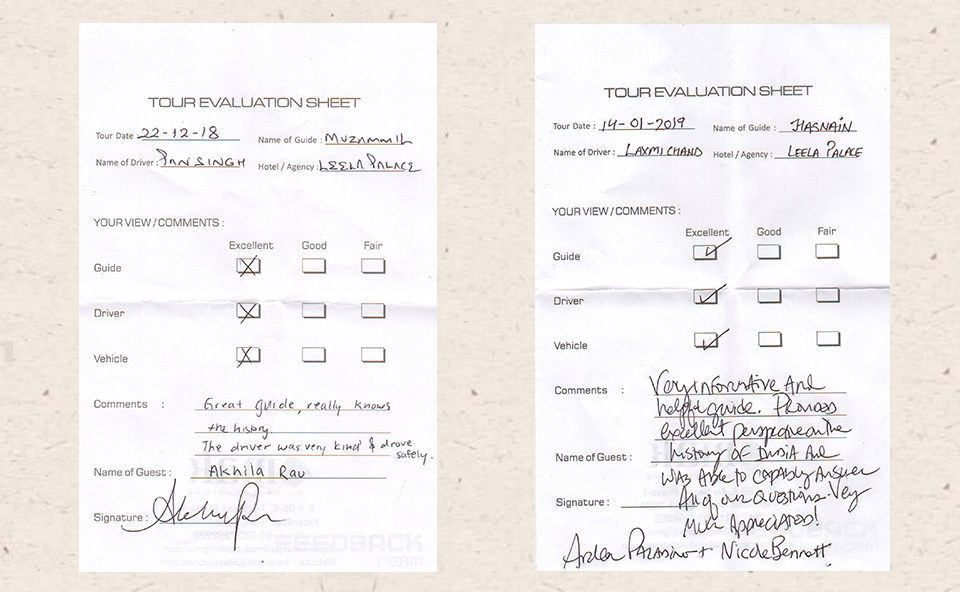 TOUR EVALUATION SHEET
Tour Date : 22-12-18 Name of Guide : MUZAMMIL
Name of Driver : PANSINGH Hotel / Agency : LEELA PALACE
YOUR VIEW / COMMENTS :
Excellent Good Fair
Guide
Driver
Vehicle
Comments : Great guide, really knows
the history.
The driver was very kind & drove
safely.
Name of Guest : Akhila Rau
Signature :
FEEDBACK
TOUR EVALUATION SHEET
Tour Date : 14-01-2019 Name of Guide : HASNAIN
Name of Driver : LAXMICHAND Hotel / Agency : LEELA PALACE
YOUR VIEW / COMMENTS :
Excellent Good Fair
Guide
Driver
Vehicle
Comments : Very informative and
helpful guide. Provides
excellent perspective on the
Name of Guest : history of India and
was able to capably answer
Signature : All of our questions. Very
much appreciated!
+ Nicole Bennett